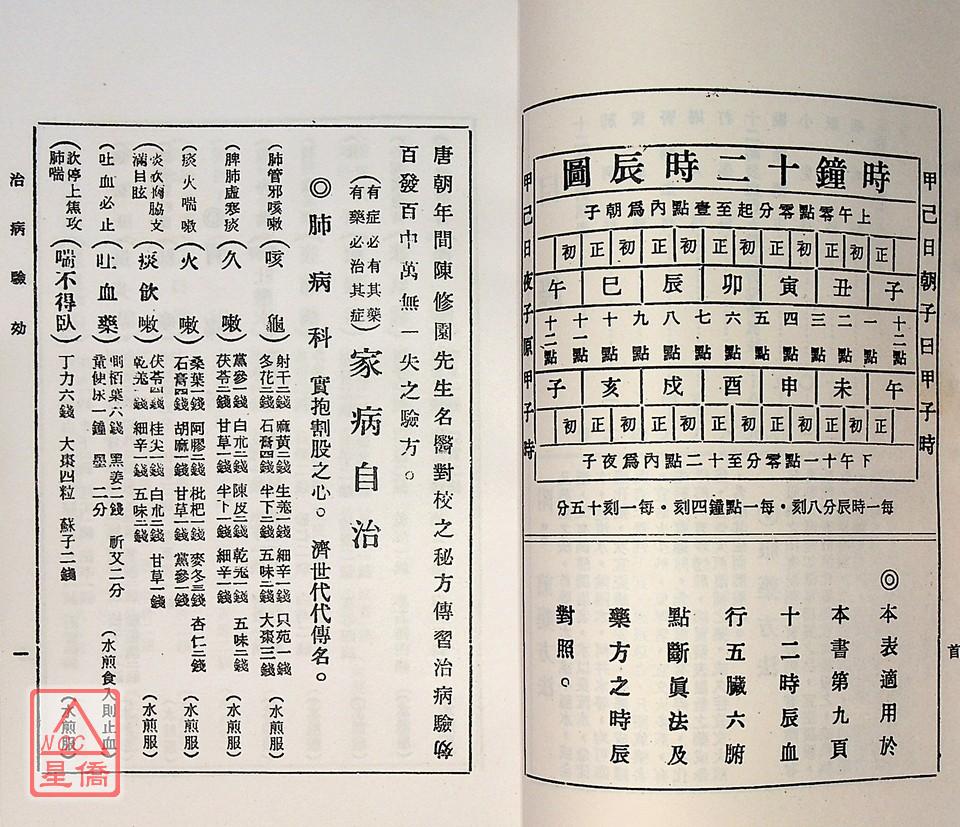 時鐘十二時辰圖
上午零點零分起至壹點內爲朝子
正初正初正初正初正初正初
子丑寅卯辰巳午
十二點 一點 二點 三點 四點 五點 六點 七點 八點 九點 十點 十一點 十二點
午未申酉戌亥子
正初正初正初正初正初正初
下午十一點零分至十二點內爲夜子
每一時辰分八刻・每一點鐘四刻・每一刻十五分
甲己日朝子日甲子時
甲己日夜子原甲子時
◎本表適用於
本書第九頁
十二時辰血
行五臟六腑
點斷眞法及
藥方之時辰
對照。
首
唐朝年間陳修園先生名醫對校之秘方傳習治病驗効
百發百中萬無一失之驗方。
(有症必有其藥
有藥必治其症)
家病自治
◎肺病科 實抱割股之心。 濟世代代傳名。
(肺管邪咳嗽)(咳 龜) 射干二錢 麻黃二錢 生羗一錢 細辛一錢 只苑一錢
冬花二錢 石膏四錢 半下二錢 五味二錢 大棗三錢 (水煎服)
(脾肺虛寒痰)(久 嗽) 黨參二錢 白朮二錢 陳皮二錢 乾羗二錢 五味二錢
茯苓二錢 甘草一錢 半卞一錢 細辛一錢 (水煎服)
(痰火喘嗽)(火 嗽) 桑葉二錢 阿膠二錢 枇杷一錢 麥冬三錢 杏仁二錢
石膏四錢 胡麻一錢 甘草一錢 黨參一錢 (水煎服)
滿目眩)(痰飲嗽) 茯苓四錢 桂尖一錢 白朮二錢 甘草一錢
乾羗二錢 細辛一錢 五味二錢 (水煎服)
(吐血必止)(吐血藥) 側栢葉六錢 黑姜二錢 祈艾二分
童便尿一鐘 墨 二分 (水煎食入則止血)
欬停上焦攻
肺喘)(喘不得臥) 丁力六錢 大棗四粒 蘇子二錢 (水煎服)
治病驗効
一
NCC
星僑